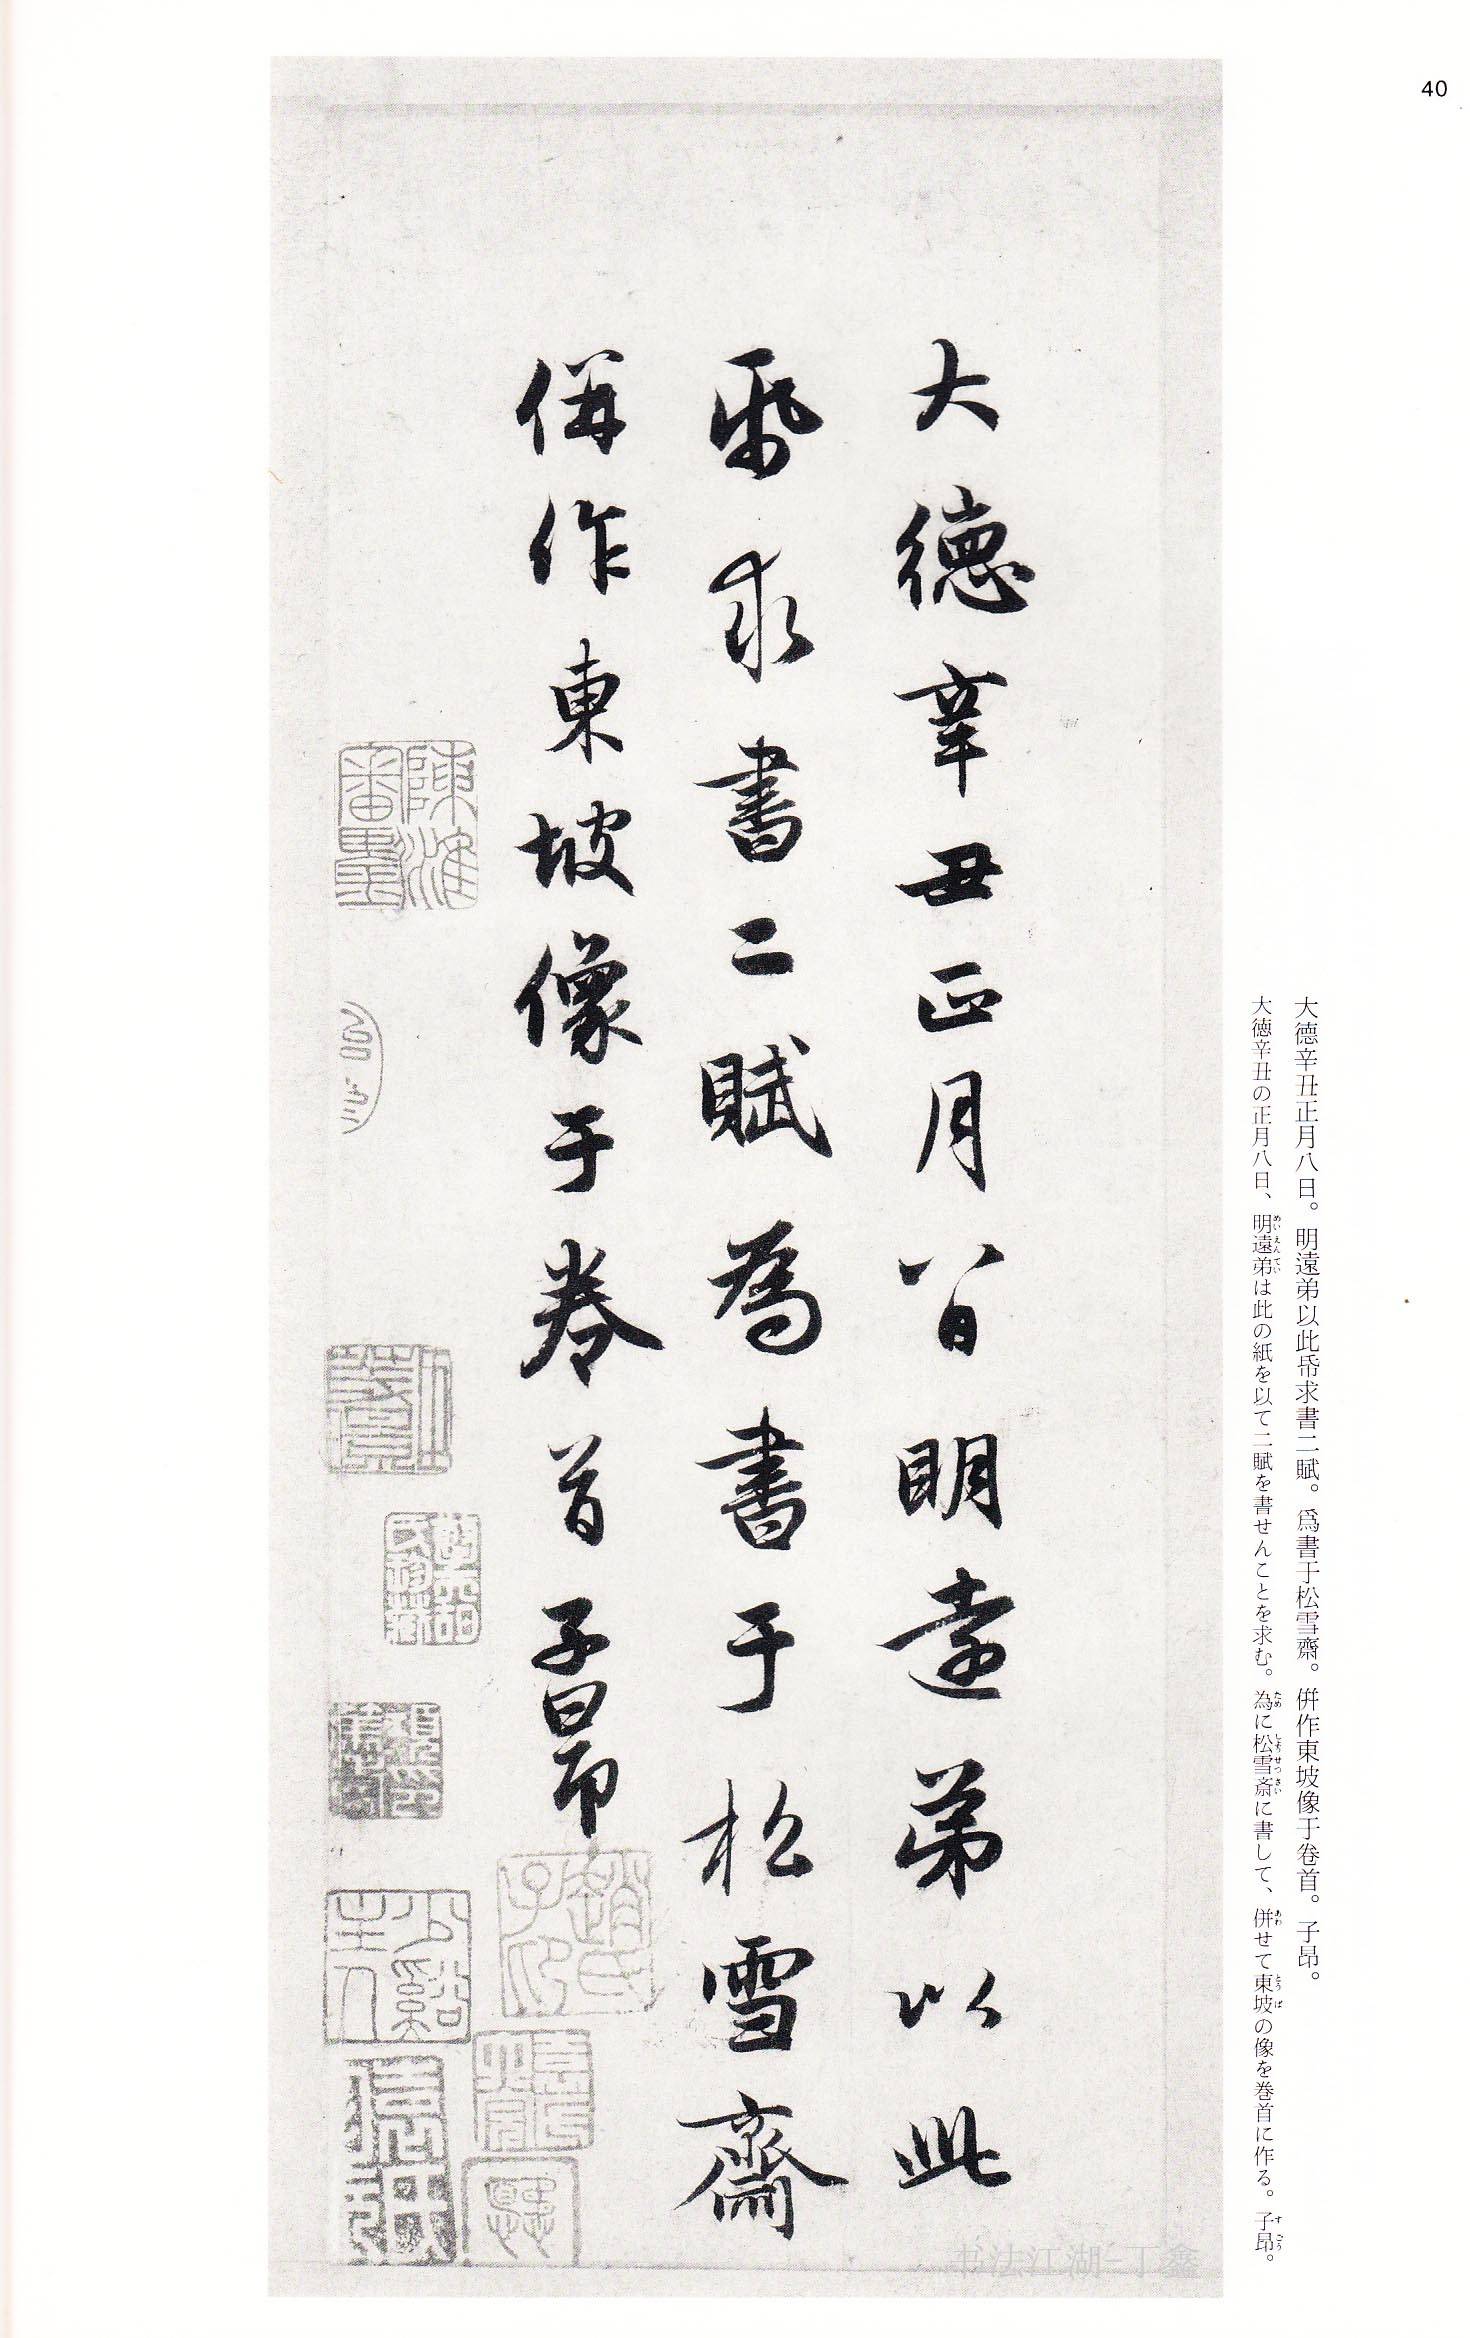 40
大德辛丑正月八日。明遠弟以此帋求書二賦。爲書于松雪齋。併作東坡像于卷首。子昂。
大徳辛丑の正月八日、明遠弟は此の紙を以て二賦を書せんことを求む。為に松雪斎に書して、併せて東坡の像を巻首に作る。子昂。
めいえんてい
ため
しょうせっさい
あわ
とうば
すごう
大德辛丑正月八日明遠弟以此
帋求書二賦為書于松雪齋
併作東坡像于卷首子昂
陳淮
審墨
趙氏
子印
书法江湖-丁鑫